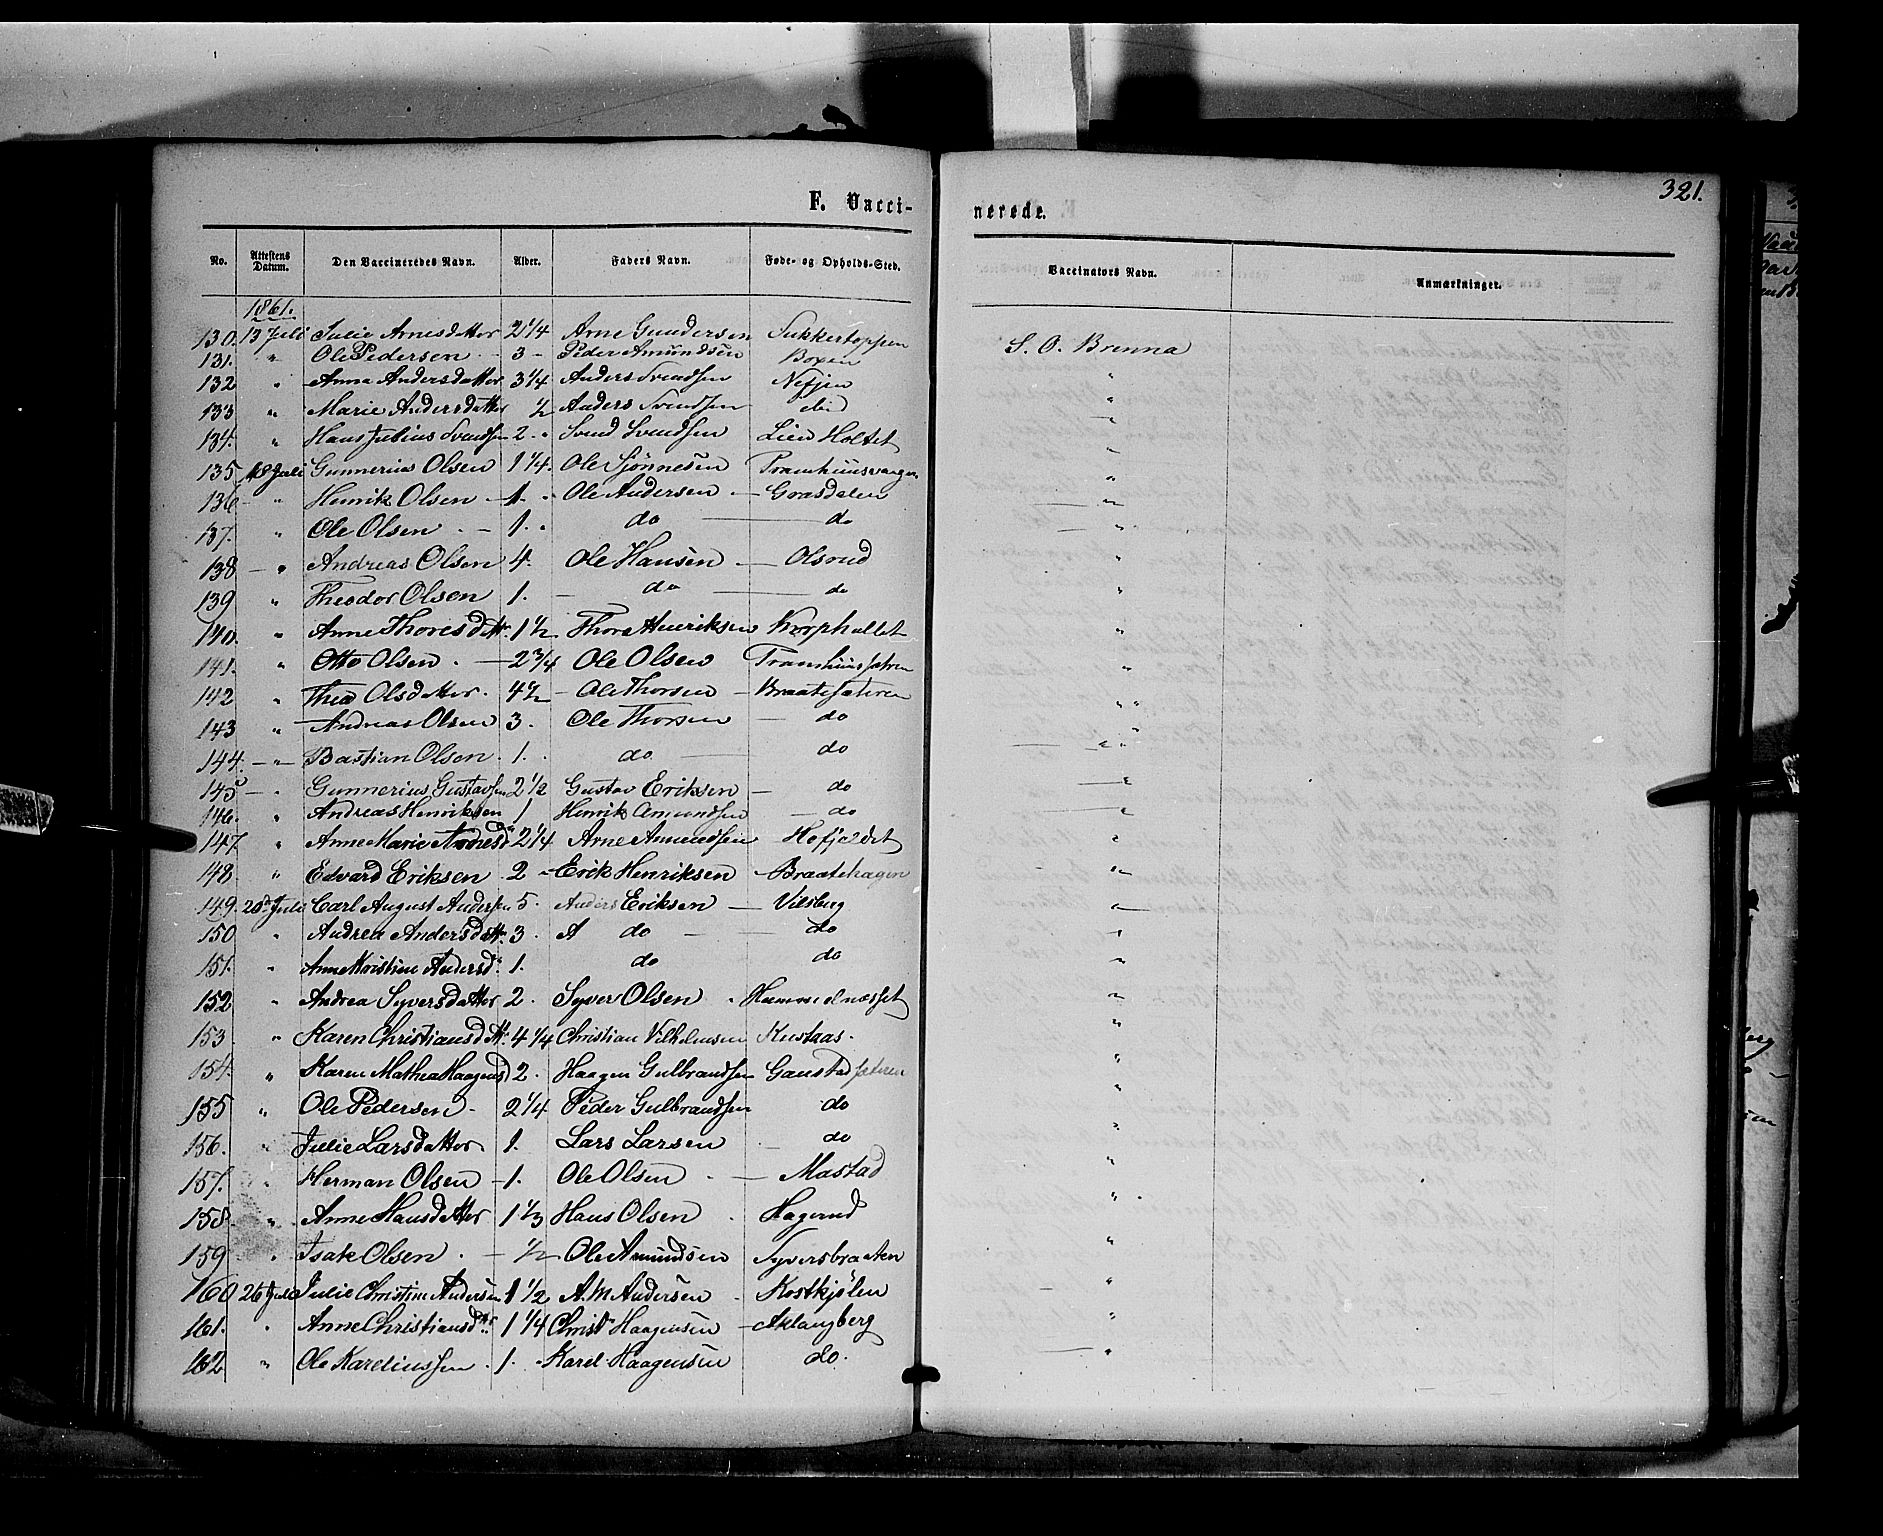 321.
F. Vacci-
nerede.
No. Attestens Datum. Den Vaccineredes Navn. Alder. Faders Navn. Føde- og Opholds-Sted. Vaccinators Navn. Anmærkninger.
1861.
130. 13 Juli Julie Arnesdatter 2 1/4 Arne Gundersen Sukkertoppen S. O. Brenna
131. " Ole Pedersen 3 Peder Amundsen "
132 " Anna Andersdatter 3 1/4 Anders Svendsen "
133 " Marie Andersdatter 1/2 Anders Svendsen "
134. " Hans Julius Svendsen 2 Svend Svendsen Lien Holtet "
135 18 Juli Gunnerius Olsen 1 1/4. Ole "
136 " Henrik Olsen 1. Ole Andersen Grasdalen "
137. " Ole Olsen 1. do do "
138 " Andreas Olsen 4. Ole Hansen Olsrud "
139 " Theodor Olsen 1. do do "
140. " Anne Thoresdtr. 1 1/2 Thore Henriksen Korphullet "
141. " Otto Olsen 2 3/4 Ole Olsen "
142 " Thea Olsdatter. 4 1/2 Ole Thorsen Braatesæteren "
143 " Andreas Olsen 3. Ole Thorsen do "
144. " Bastian Olsen 1. do do "
145 " Gunnerius Gustavsen 2 1/2 Gustav Eriksen do "
146. " Andreas Henriksen 1 Henrik Amundsen do "
147 " Anne Marie Arnesd 2 1/4 Arne Amundsen Hofjeldet "
148. " Edvard Eriksen 2 Erik Henriksen Braatehagen "
149. 20de Juli Carl August Andersen 5. Anders Eriksen Vilsberg "
150 " Andrea Andersdtr 3 A do do "
151. " Anne Kristine Andersd. 1. do do "
152 " Andrea Syversdatter 2. Syver Olsen "
153 " Karen Christiansdtr. 4 1/4 Christian Vilhelmsen Knstaas. "
154. " Karen Mathea Haagensd 2. Haagen Gulbrandsen Gaustadsæteren "
155 " Ole Pedersen 2 1/4 Peder Gulbrandsen do "
156. " Julie Larsdatter 1. Lars Larsen do "
157. " Herman Olsen 1. Ole Olsen Mastad "
158. " Anne Hansdatter 1 1/3 Hans Olsen Hagerud "
159 " Isak Olsen 1/2 Ole Amundsen Syversbraaten "
160 26 Juli Julie Christine Andersen 1 1/2 A. M Andersen Kostkjølen "
161. " Anne Christiansdtr 1 1/4 Christ Haagensen Aklangberg "
162 " Ole Kareliussen 1. Karel Haagensen do. "